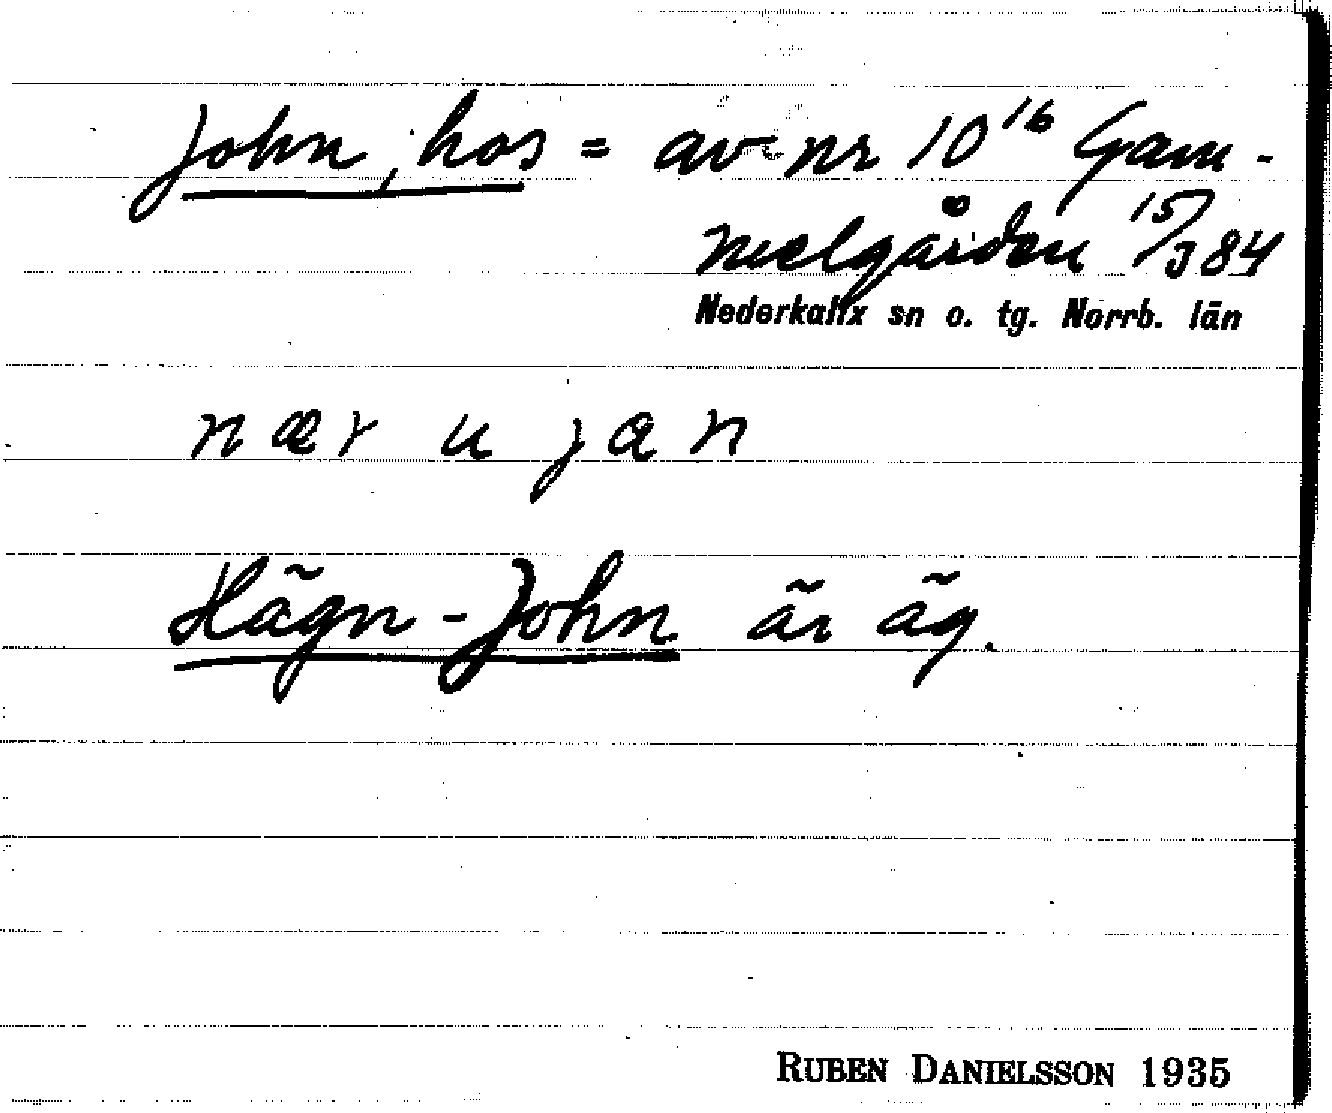 John, hos = av nr 10¹⁶ Gam-
melgården 15/J84
Nederkalix sn o. tg. Norrb. län
nær u jan
Hägn-John är äg.
RUBEN DANIELSSON 1935